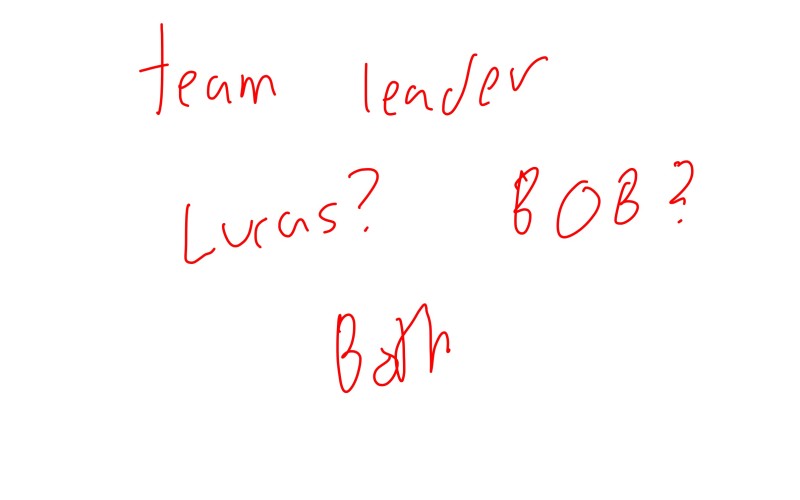 team leader
Lucas? BOB?
Both